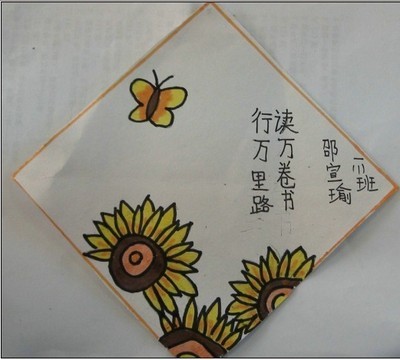 读万卷书
行万里路
一(1)班
邵宣瑜